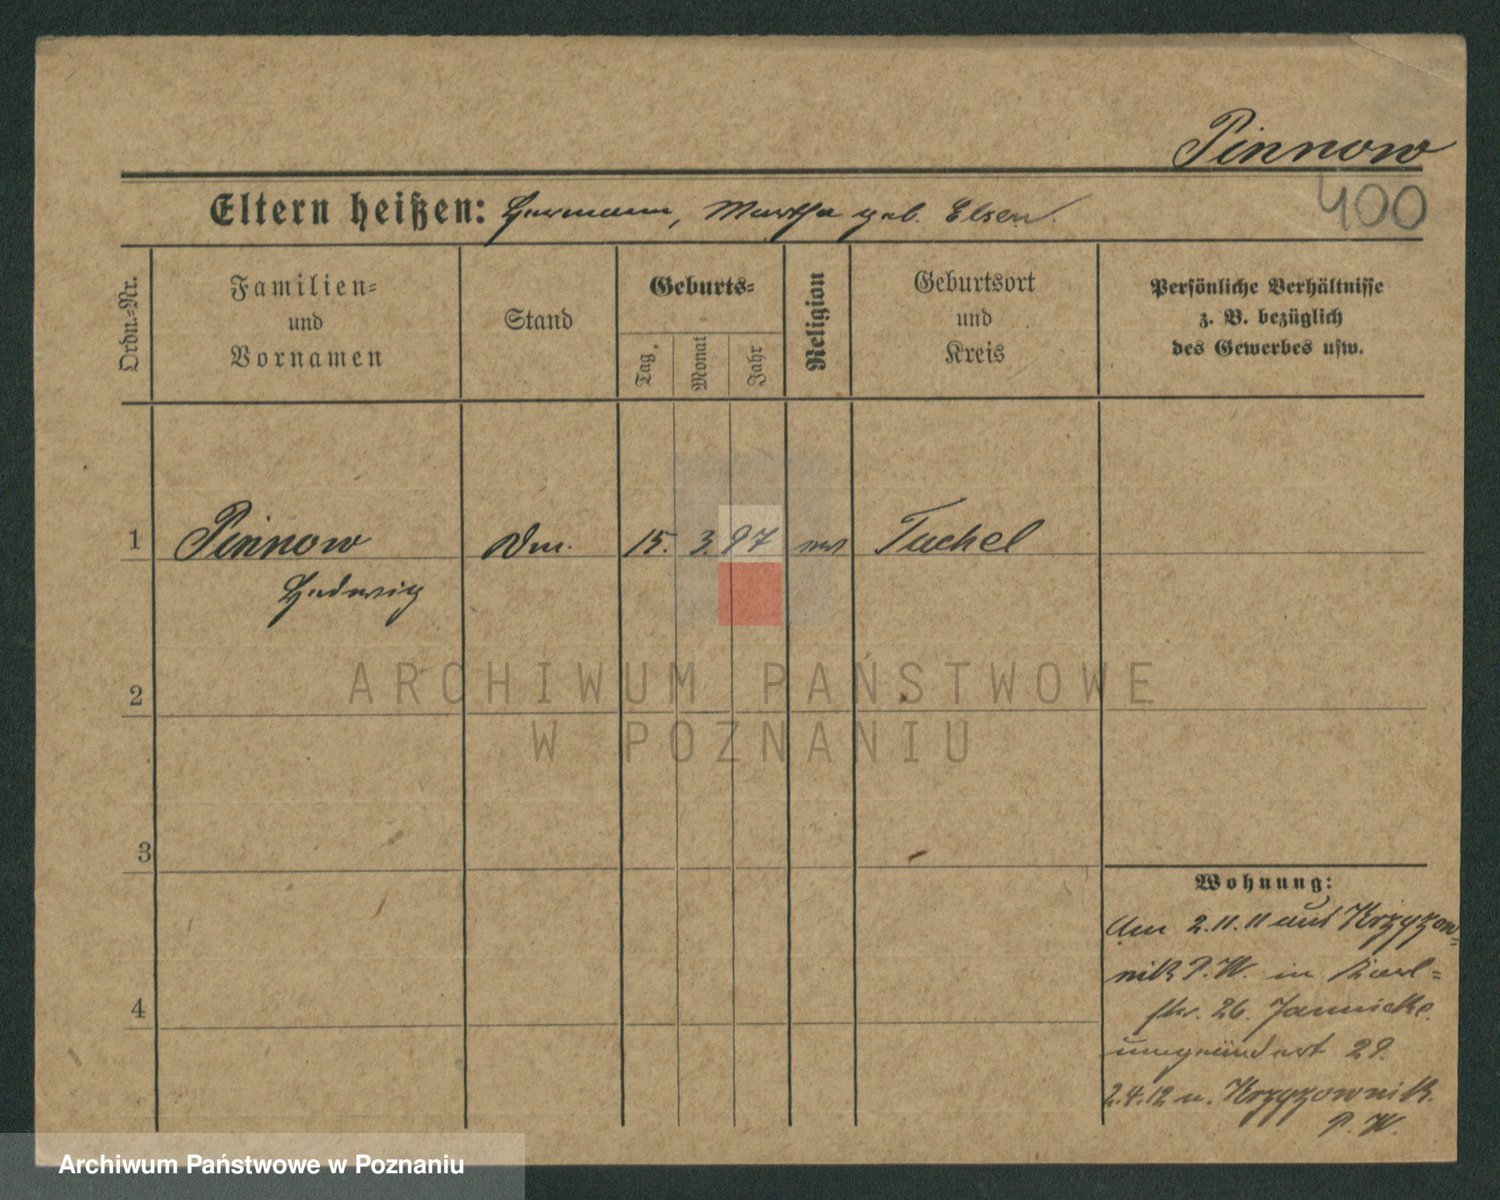 Pinnow
400
Eltern heißen: Hermann, Martha geb. Elsen.
Ordn.-Nr.
Familien-
und
Vornamen
Stand
Geburts-
Tag.
Monat
Jahr
Religion
Geburtsort
und
Kreis
Persönliche Verhältnisse
z. B. bezüglich
des Gewerbes usw.
1 Pinnow 15. 3. 97 Tuchel
Hedwig
2
3
4
Wohnung:
Am 2.11.11 aus Krzyzow=
nik P.W. in Karl=
str. 26. Jannicke.
2.4.12 n. Krzyzownik
P. W.
ARCHIWUM PAŃSTWOWE
W POZNANIU
Archiwum Państwowe w Poznaniu